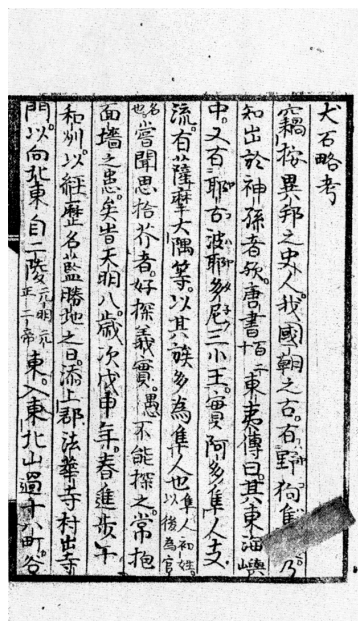 犬石略考
竊按異邦之史人我國朝之古有野狗隼 乃
知出於神孫者歟唐書百二十東夷傳曰其東海嶼
中又有耶古波耶多尼三小王實阿多隼人支
流有薩摩大隅等以其族多為隼人也隼人初姓以後為官
名也嘗聞思拾芥者好探義實愚不能探之常抱
面墻之患矣昔天明八歲次戊申年春進步午
和州以經歷名藍勝地之日添上郡法華寺村出寺
門以向北東自二陵元明元正二帝東入東北山過十六町